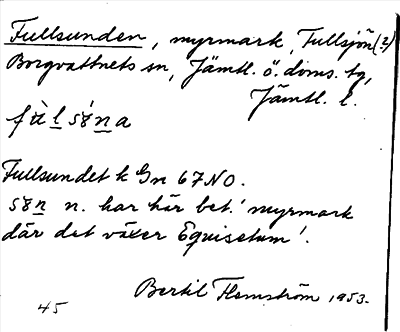 Fullsunden, myrmark, Fullsjön (2)
Borgvattnets sn, Jämtl. ö. doms. tg,
Jämtl. l.
Fullsundet k Gn 67 NO.
n. har här bet. 'myrmark
där det växer Equisetum'.
Bertil Flemström 1953.
45